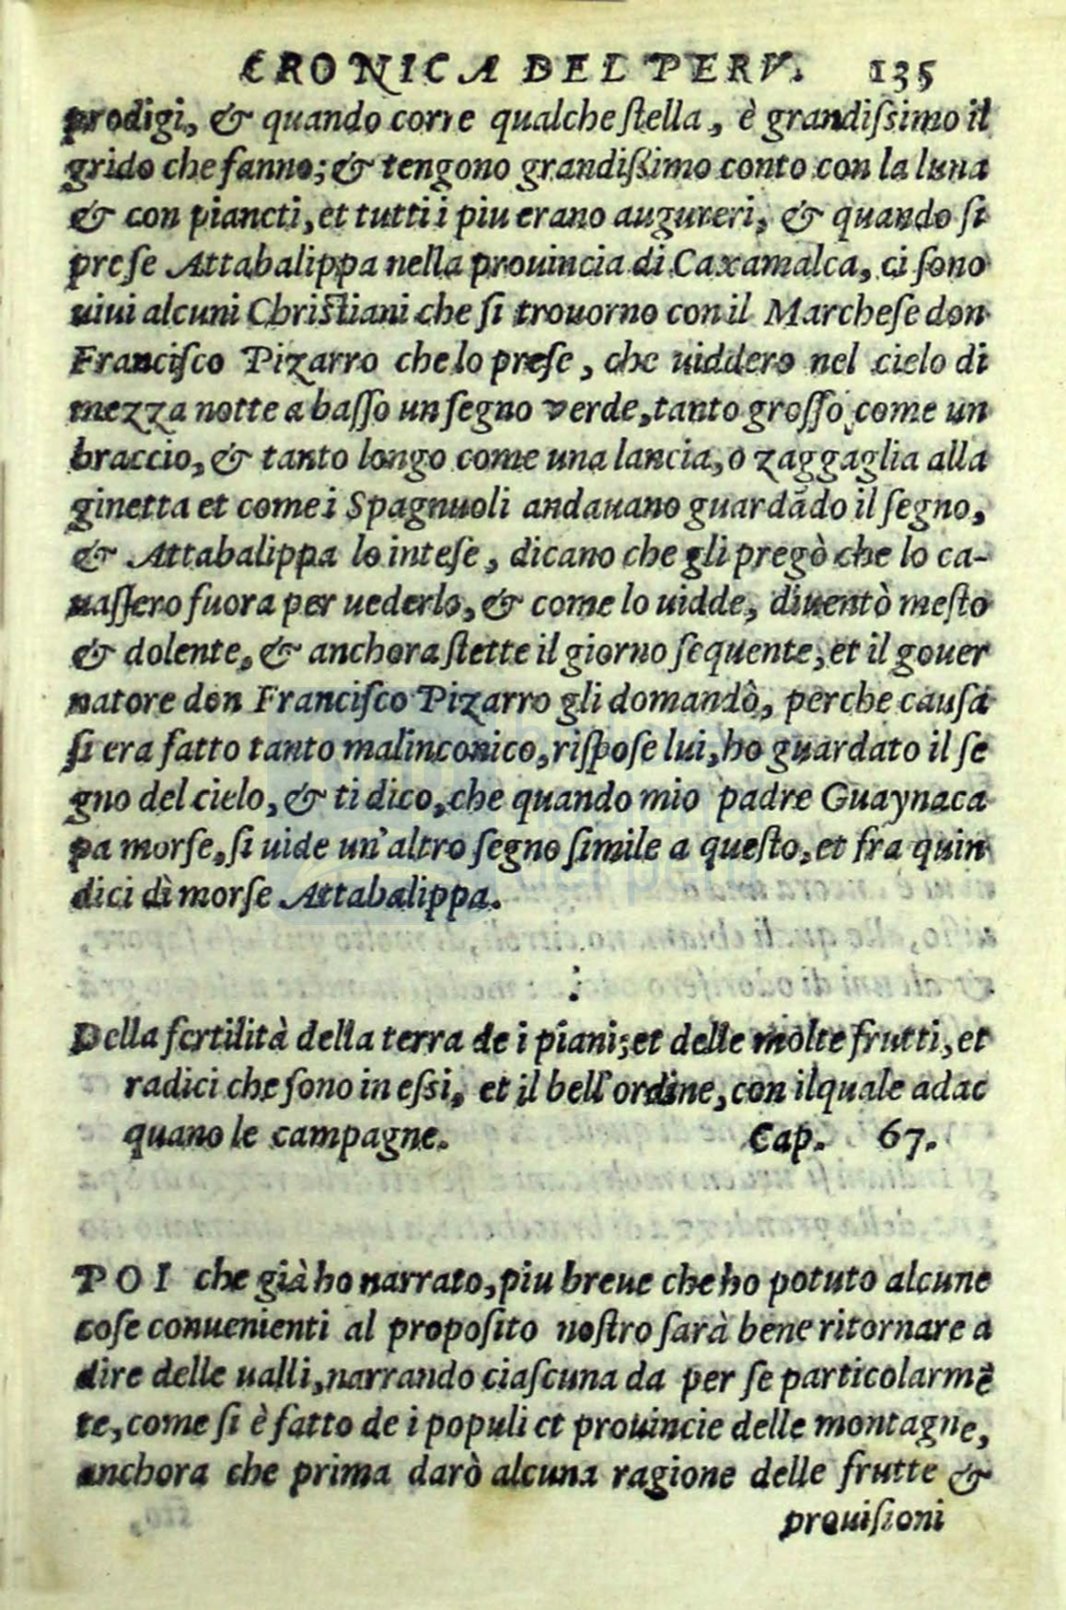 CRONICA DEL PERV. 135
prodigi, & quando corre qualche ſtella, è grandiſsimo il
grido che fanno; & tengono grandiſsimo conto con la luna
& con piancti, et tutti i piu erano augureri, & quando ſi
preſe Attabalippa nella prouincia di Caxamalca, ci ſono
uiui alcuni Chriſtiani che ſi trouorno con il Marcheſe don
Franciſco Pizarro che lo preſe, che uiddero nel cielo di
mezza notte a baſſo un ſegno verde, tanto groſſo come un
braccio, & tanto longo come una lancia, o zaggaglia alla
ginetta et come i Spagnuoli andauano guardãdo il ſegno,
& Attabalippa lo inteſe, dicano che gli pregò che lo ca-
uaſſero fuora per uederlo, & come lo uidde, diuentò meſto
& dolente, & anchora ſtette il giorno ſequente, et il gouer
natore don Franciſco Pizarro gli domandò, perche cauſa
ſi era fatto tanto malinconico, riſpoſe lui, ho guardato il ſe
gno del cielo, & ti dico, che quando mio padre Guaynaca
pa morſe, ſi uide un'altro ſegno ſimile a queſto, et fra quin
dici dì morſe Attabalippa.
Della fertilità della terra de i piani; et delle molte frutti, et
radici che ſono in eſsi, et il bell'ordine, con ilquale adac
quano le campagne. Cap. 67.
POI che già ho narrato, piu breue che ho potuto alcune
coſe conuenienti al propoſito noſtro ſarà bene ritornare a
dire delle ualli, narrando ciaſcuna da per ſe particolarmẽ
te, come ſi è fatto de i populi et prouincie delle montagne,
anchora che prima darò alcuna ragione delle frutte &
prouiſioni